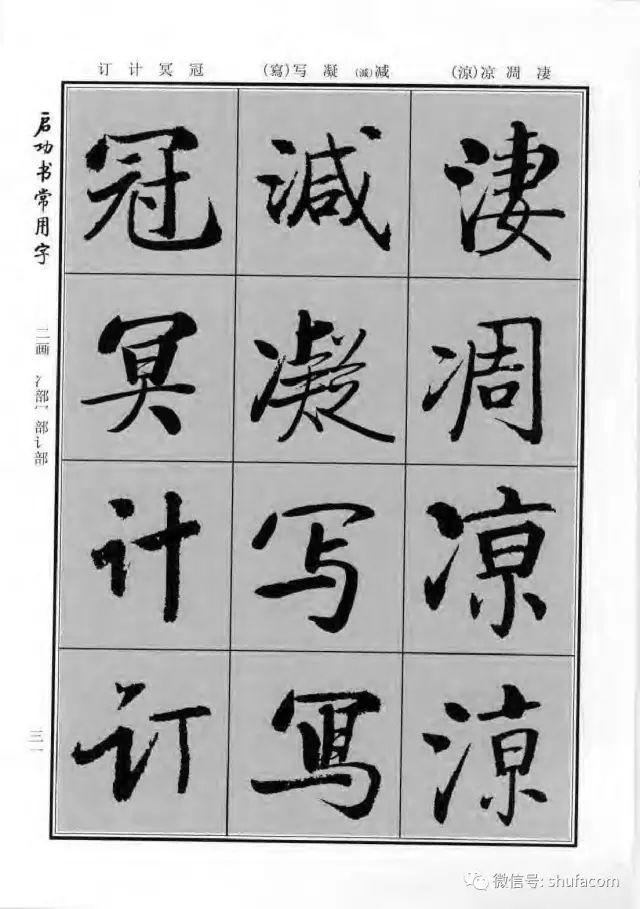 订 计 冥 冠 (寫)写 凝 (減)减 (涼)凉 凋 凄
凄凋凉涼
減凝写寫
冠冥计订
启功书常用字
二画 冫部冖部讠部
三一
微信号: shufacom